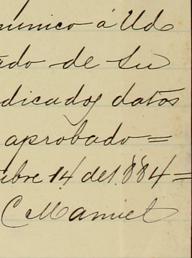 munico á Ud
ado de su
dicados datos
aprobado=
bre 14 de 1.884=
C Manuel